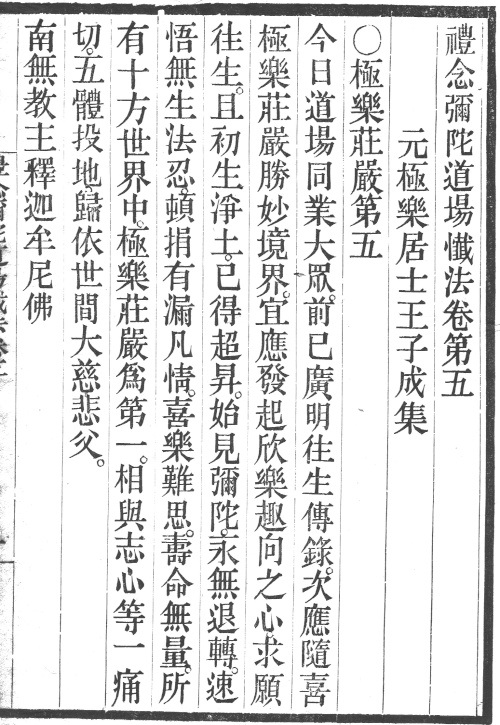 禮念彌陀道場懺法卷第五
元極樂居士王子成集
○極樂莊嚴第五
今日道場同業大眾。前已廣明往生傳錄。次應隨喜
極樂莊嚴勝妙境界。宜應發起欣樂趣向之心。求願
往生。且初生淨土。已得超昇。始見彌陀。永無退轉。速
悟無生法忍。頓捐有漏凡情。喜樂難思。壽命無量。所
有十方世界中。極樂莊嚴爲第一。相與志心等一痛
切。五體投地。歸依世間大慈悲父。
南無教主釋迦牟尼佛